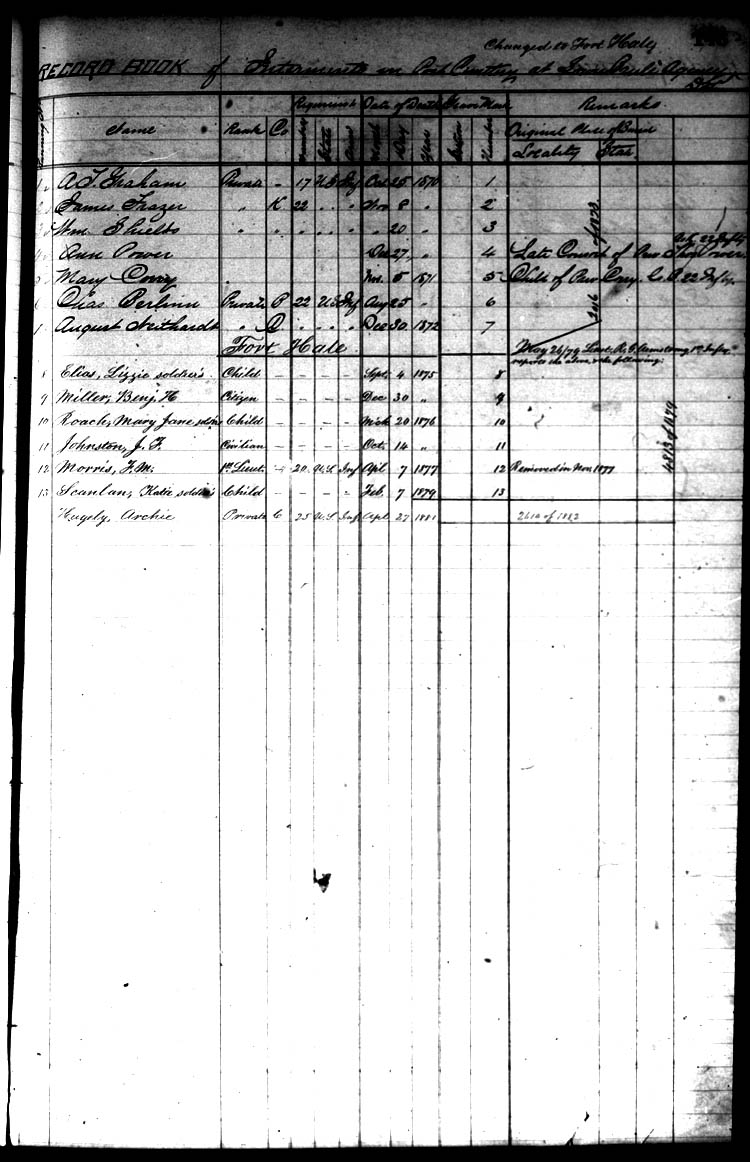 Changed to Fort Hale
RECORD BOOK of Interments in Post Cemetery at Lower Brule Agency
Name Rank Co Regiment Date of Death Grave Mark Remarks
Number State Arm Month Day Year Section Number Original Place of Burial
Locality State
1 A. T. Graham Private - 17 U.S. Inf Oct 25 1870 1
2 James Frazer " K 22 " " Nov 8 " 2
3 Wm Shields " " " " " " 20 " 3
4 Ann Power Dec 27 " 4 Late Consort of Thos Power 22 Infty
5 Mary Corry Nov. 5 1871 5 Child of Corry Co. 22 Infty.
6 Chas Perlinn Private 22 U.S. Inf Aug 25 " 6
August Neithardt " " " " Dec 30 1872 7
Fort Hale
May 26/79 Lieut. R. G. Armstrong 1st Infty
reports the above & the following:
8 Elias, Lizzie soldier's Child - - - - Sept. 4 1875 8
9 Miller, Benj. H Citizen - - - - Dec 30 " 9
10 Roach, Mary Jane soldier's Child - - - - Mch 20 1876 10
11 Johnston, J. F. Civilian - - - - Oct. 14 " 11
12 Morris, F. M. 1st Lieut. - 20 U.S. Inf Apl. 7 1877 12 Removed in Nov. 1877
13 Scanlan, Katie soldier's Child - - - - Feb. 7 1879 13
Hugely, Archie Private C 25 U.S. Inf Apl 27 1881 2610 of 1882
4813 of 1879